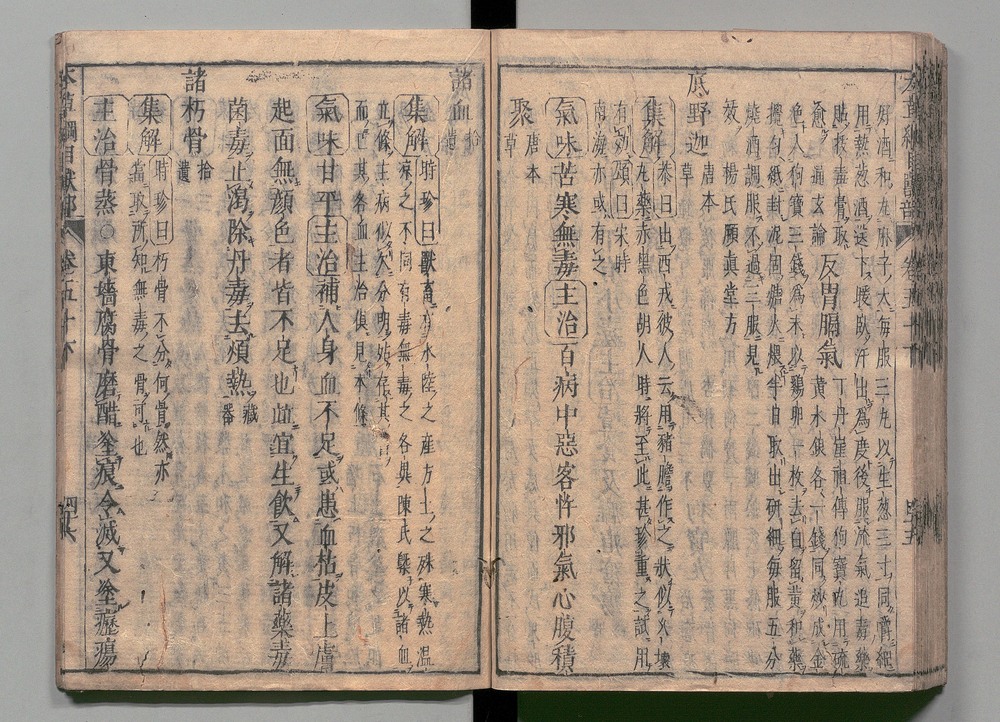 本草綱目獸部 卷五十 四十五
好酒和丸麻子大每服三丸以生葱三寸同嚼細
用熱葱酒送下暖臥汗出爲度後服流氣追毒藥
貼拔毒膏取
愈 龜玄論
反胃膈氣
丁丹崖祖傳狗寶丸用硫
黃水銀各一錢同炒成金
色入狗寶三錢爲末以雞卵一枚去白留黃和藥
攪勻紙封泥固煻火煨半日取出研細每服五分
燒酒調服不過三服見
效 楊氏頤眞堂方
底野迦
唐本
草
集解
恭曰出西戎彼人云用豬膽作之狀似久壞
丸藥赤黑色胡人時將至此甚珍重之試用
有效頌曰宋時
南海亦或有之
氣味苦寒無毒主治百病中惡客忤邪氣心腹積
聚
唐本
草
諸血
拾
遺
集解
時珍曰獸畜有水陸之產方土之殊寒熱溫
涼之不同有毒無毒之各異陳氏槩以諸血
立條主病似欠分明姑存其
而已其各血主治俱見本條
氣味甘平主治補人身血不足或患血枯皮上膚
起面無顏色者皆不足也竝宜生飲又解諸藥毒
菌毒止渴除丹毒去煩熱
藏
器
諸朽骨
拾
遺
集解
時珍曰朽骨不分何骨然亦
當取所知無毒之骨可也
主治骨蒸○東墻腐骨磨醋塗痕令滅又塗癧瘍
本草綱目獸部 卷五十 四十六